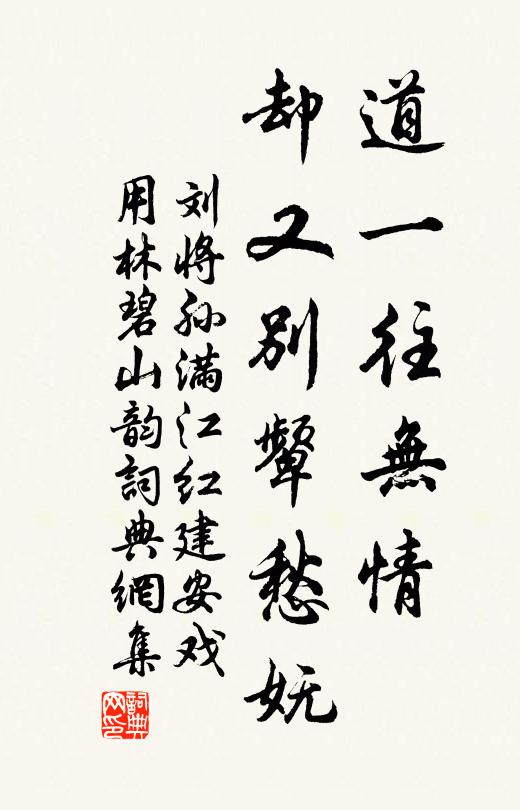 道一往無情
却又別顰愁妩
刘将孙满江红建安戏
用林碧山韵詞典網集
詞典网印